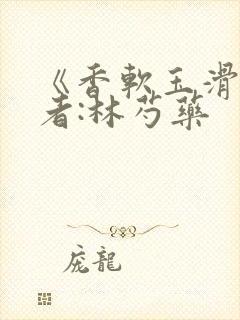 《香軟玉滑
者:林芍藥
庞龍